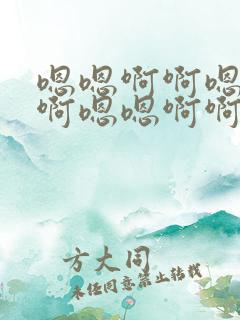 嗯嗯啊啊嗯
啊嗯嗯啊啊
方大同
未经同意禁止转载